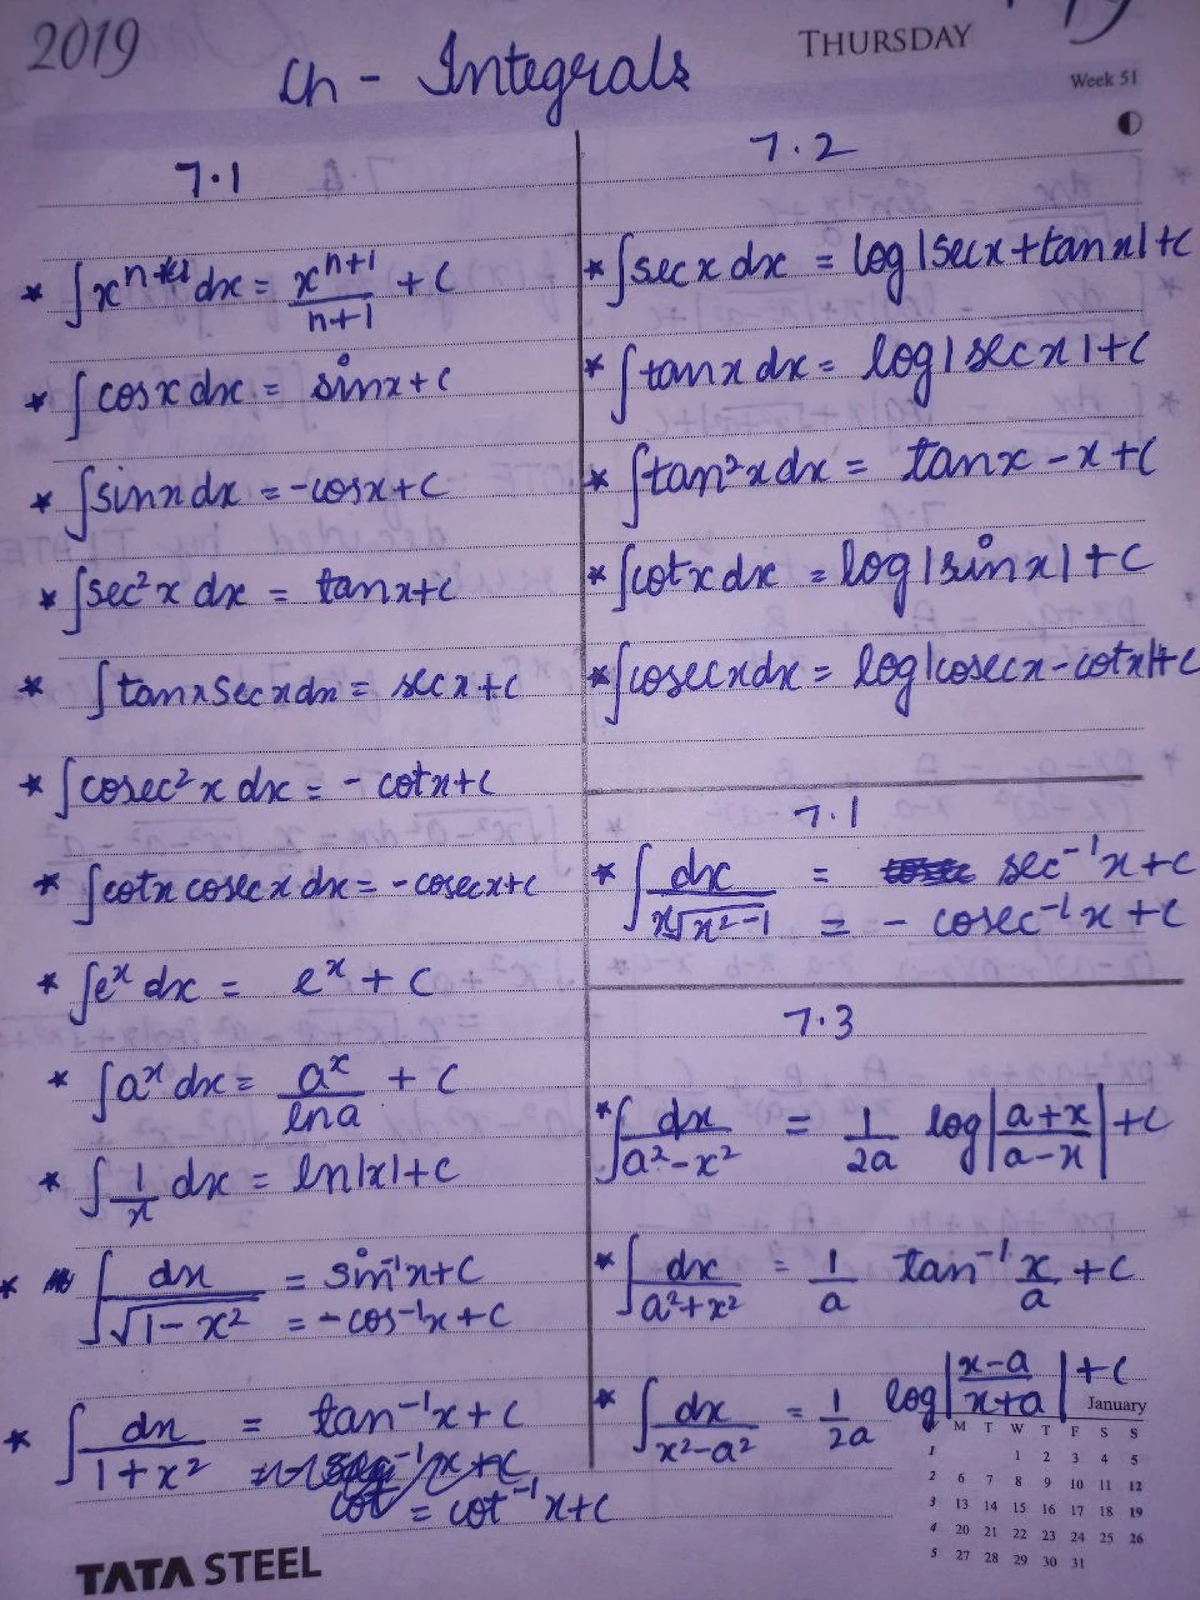 2019
THURSDAY
Week 51
Ch - Integrals
7.1
* ∫xⁿ dx = xⁿ⁺¹/n+1 + C
* ∫cosx dx = sinx+C
* ∫sinx dx = -cosx+C
* ∫sec²x dx = tanx+C
* ∫tanx secx dx = secx+C
* ∫cosec²x dx = - cotx+C
* ∫cotx cosecx dx = -cosecx+C
* ∫eˣ dx = eˣ + C
* ∫aˣ dx = aˣ/ln a + C
* ∫1/x dx = ln|x|+C
* ∫dx/√(1-x²) = sin⁻¹x+C
= -cos⁻¹x+C
* ∫dx/1+x² = tan⁻¹x+C
= cot⁻¹x+C
7.2
* ∫secx dx = log|secx+tanx|+C
* ∫tanx dx = log|secx|+C
* ∫tan²x dx = tanx-x+C
* ∫cotx dx = log|sinx|+C
* ∫cosecx dx = log|cosecx-cotx|+C
7.1
* ∫dx/x√(x²-1) = sec⁻¹x+C
= - cosec⁻¹x+C
7.3
* ∫dx/a²-x² = 1/2a log|a+x/a-x|+C
* ∫dx/a²+x² = 1/a tan⁻¹ x/a +C
* ∫dx/x²-a² = 1/2a log|x-a/x+a|+C
January
M T W T F S S
1 1 2 3 4 5
2 6 7 8 9 10 11 12
3 13 14 15 16 17 18 19
4 20 21 22 23 24 25 26
5 27 28 29 30 31
TATA STEEL